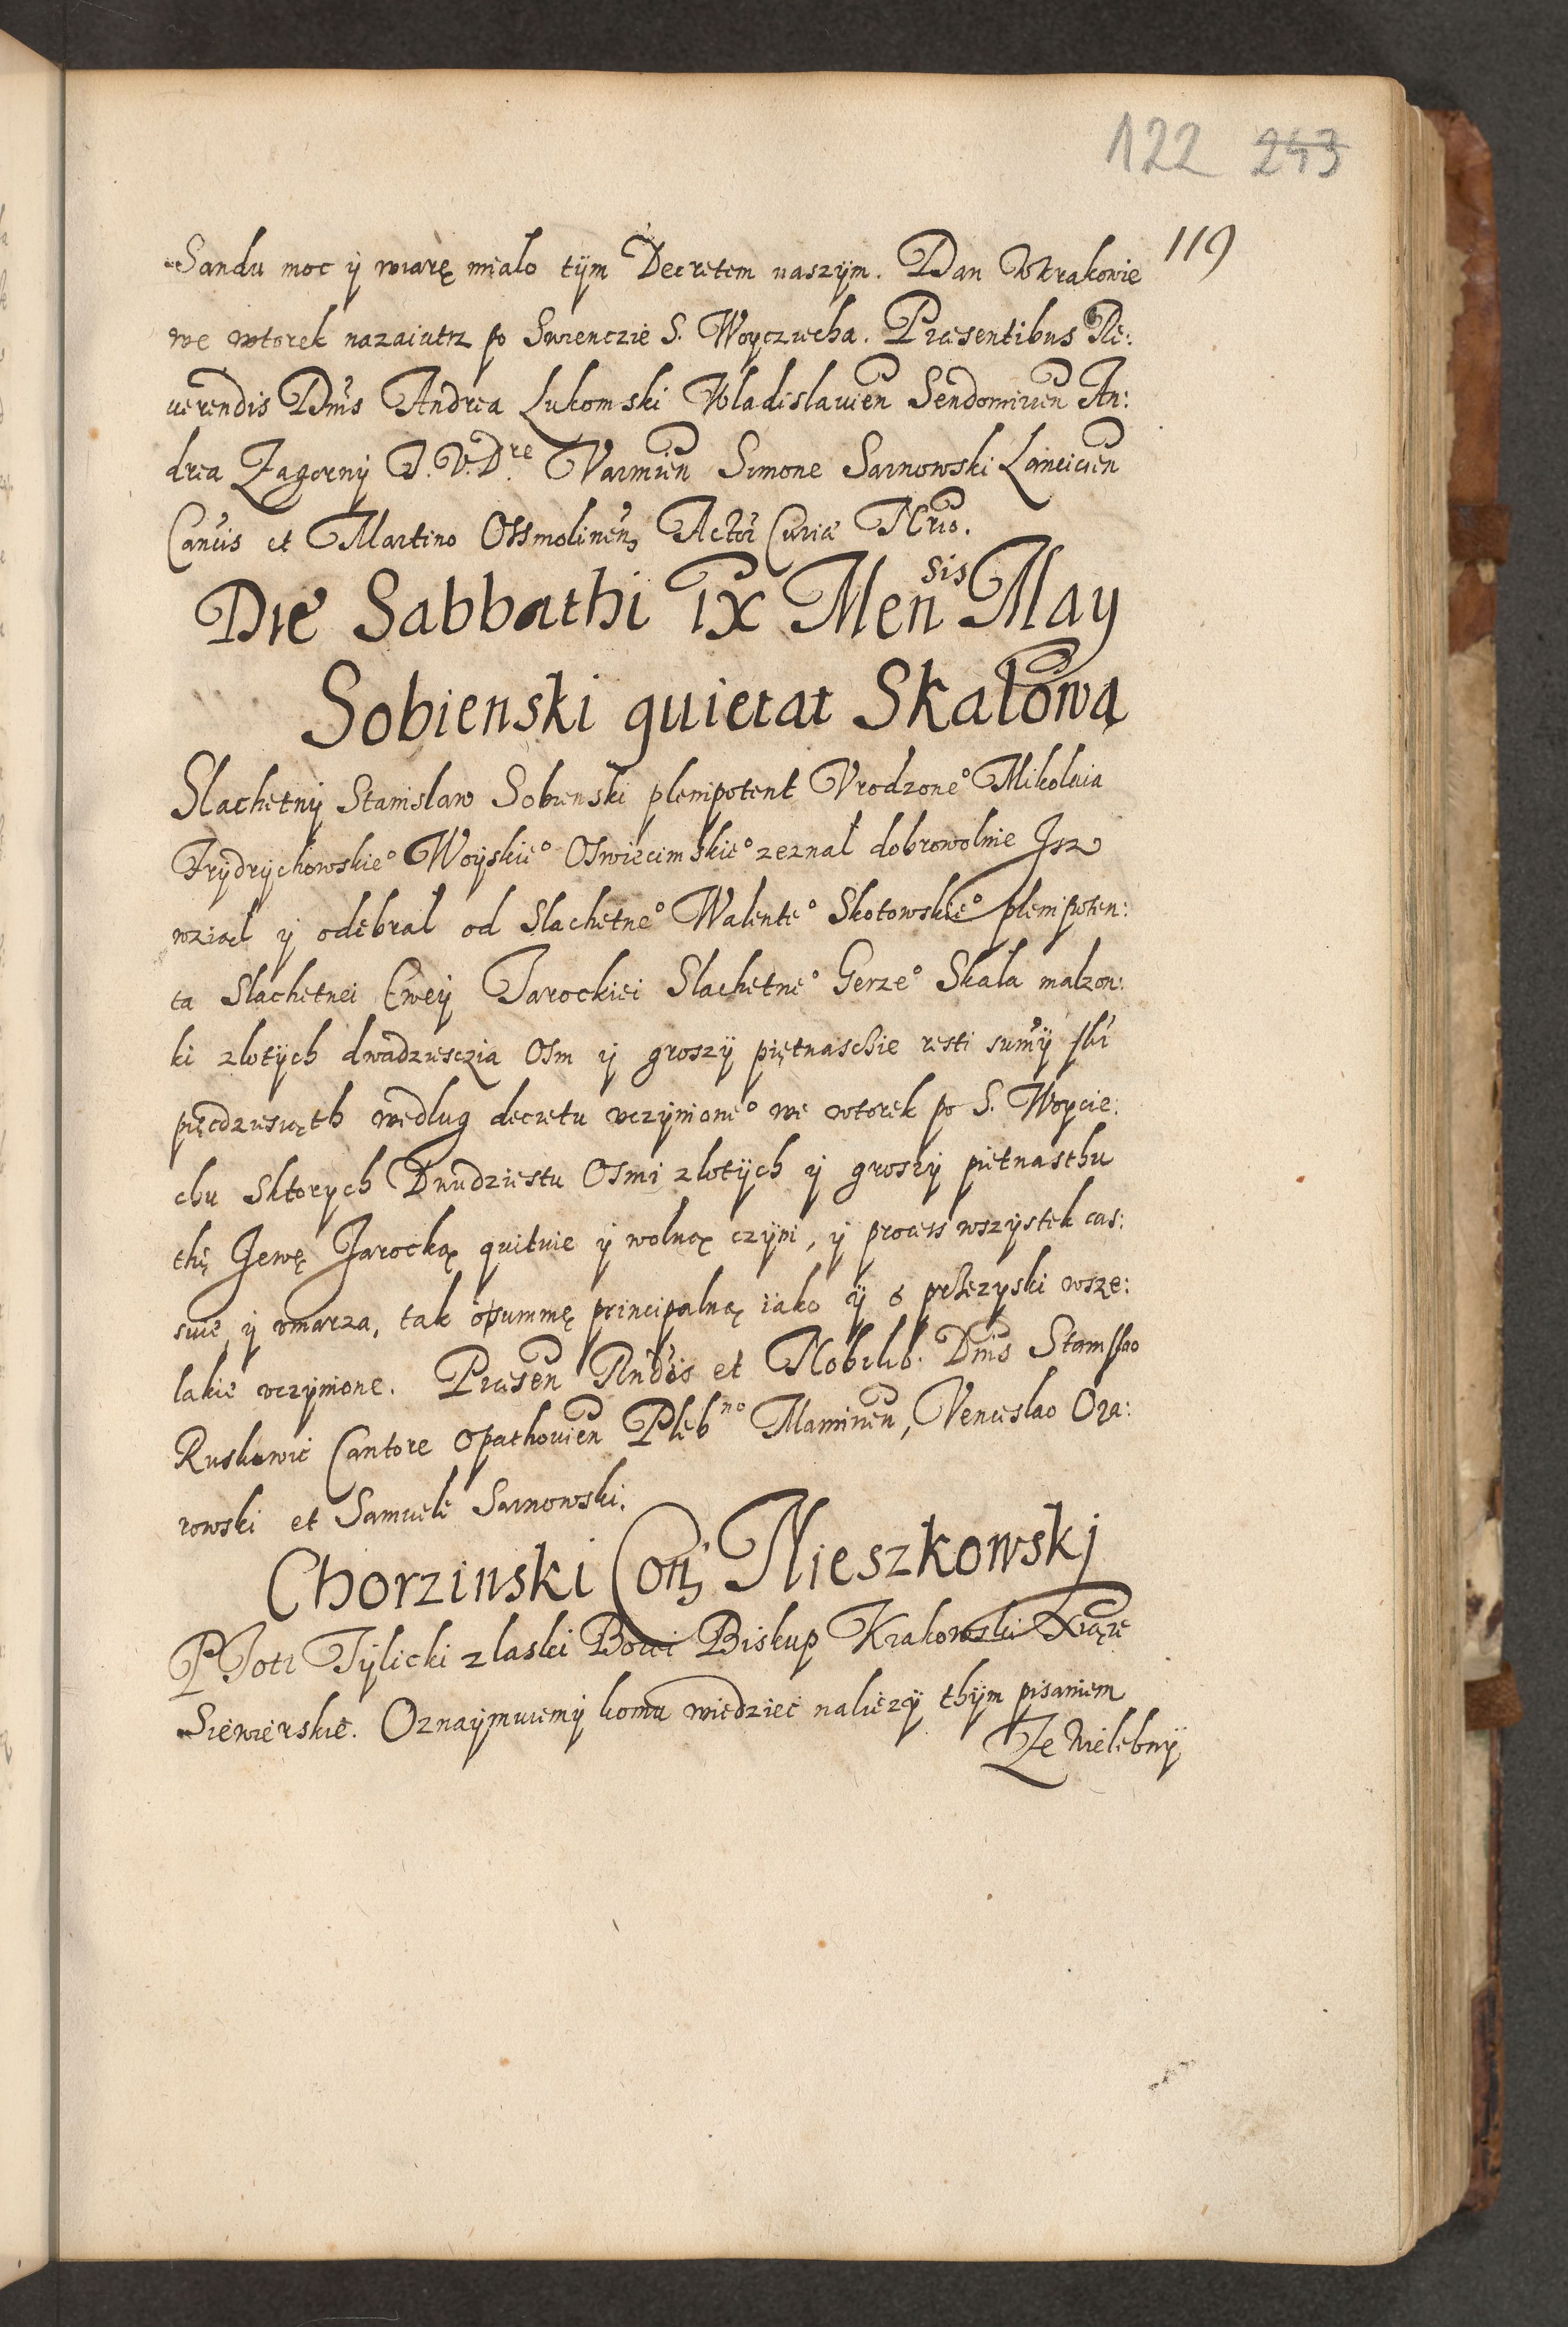 122 243
119
Sandu moc ÿ wiarę mialo tÿm Decretem naszÿm. Dan W Krakowie
we wtorek nazaiutrz po Swienczie S. Woycziecha. Præsentibus Re:
uerendis Dn̄is Andrea Lukomski Vladislauień Sendomirień An:
drea Zagornÿ J. V. Dre Varmień Simone Sarnowski Lancicień
Can̄cis et Martino Ossmolinen̄ Actor̄ Curiæ N̄rio.
Die Sabbathi IX Mensis May
Sobienski quietat Skałową
Slachetnÿ Stanislaw Sobienski plenipotent Vrodzoneo Mikolaia
Frÿdrÿchowskieo Woÿskieo Oswiecimskieo zeznał dobrowolnie Isz
wziął ÿ odebrał od Slachetneo Walenteo Skotowskieo plenipoten:
ta Slachetnei Eweÿ Jarockiei Slachetneo Gerzeo Skala malzon:
ki zlotÿch dwadziesczia Osm ÿ groszÿ piętnascie resti sum̄ÿ
pięcdziesiąth według decretu vczÿnioneo we wtorek po S. Woycie:
chu Sktorych Dwudziestu Osmi zlotÿch ÿ groszÿ pietnasthu
thę Jewę Jarocką quituie ÿ wolną czÿni, ÿ process wszystek cas:
suie ÿ vmarza, tak o summę principalną iako ÿ o przezyski wsze:
lakie vczÿnione. Præsen̄ Rn̄dis et Nobilib. Dn̄is Stanislao
Ruskowic Cantore Opathouień Plebno Maminen̄, Venceslao Oza:
rowski et Samuele Sarnowski.
Chorzinski Con̄ Nieszkowskj
PIotr Tÿlicki z laski Bozei Biskup Krakowski Xiąze
Siewierskie. Oznaÿmuiemÿ komu wiedziec nalezÿ thÿm pisaniem
Ze Wielebnÿ